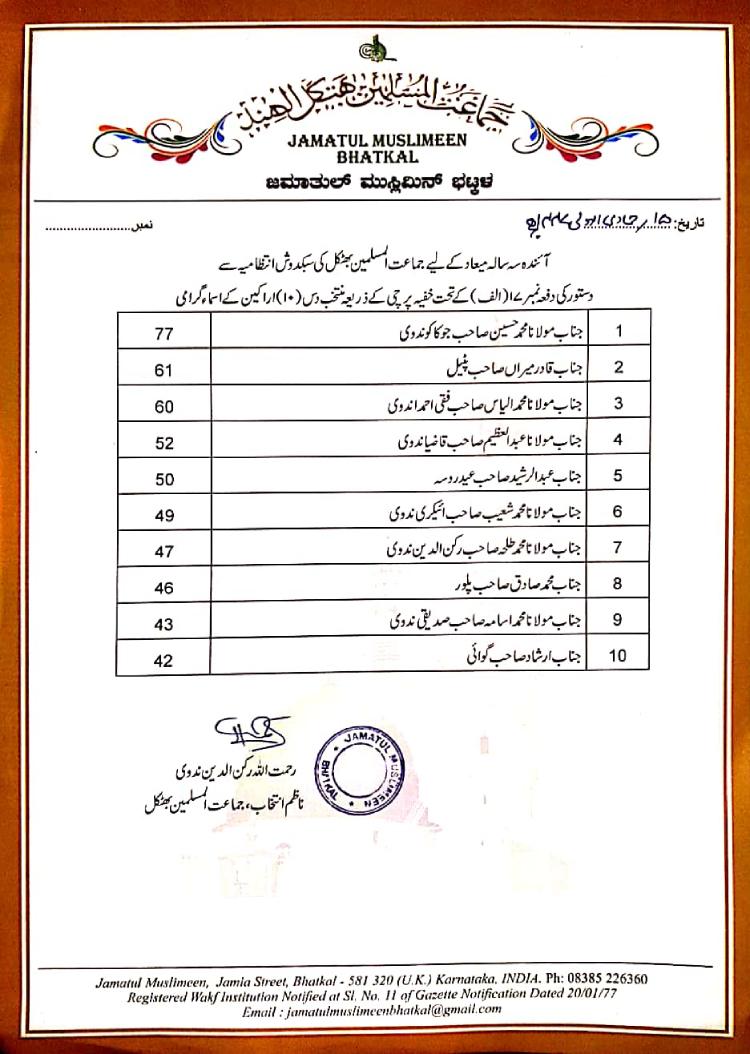 جماعت المسلمین بھٹکل الھند
JAMATUL MUSLIMEEN
BHATKAL
ಜಮಾತುಲ್ ಮುಸ್ಲಿಮಿನ್ ಭಟ್ಕಳ
تاریخ: ۱۵/جمادی الاولی
نمبر........................
آئندہ سہ سالہ میعاد کے لیے جماعت المسلمین بھٹکل کی سبکدوش انتظامیہ سے
دستور کی دفعہ نمبر ۱۷(الف) کے تحت خفیہ پرچی کے ذریعہ منتخب دس (۱۰) اراکین کے اسماء گرامی
1 جناب مولانا محمد حسین صاحب جوکاکو ندوی 77
2 جناب قادر میراں صاحب پٹیل 61
3 جناب مولانا محمد الیاس صاحب فقی احمدا ندوی 60
4 جناب مولانا عبدالعظیم صاحب قاضیا ندوی 52
5 جناب عبدالرشید صاحب عیدروسہ 50
6 جناب مولانا محمد شعیب صاحب ائیکری ندوی 49
7 جناب مولانا محمد طلحہ صاحب رکن الدین ندوی 47
8 جناب محمد صادق صاحب پلور 46
9 جناب مولانا محمد اسامہ صاحب صدیقی ندوی 43
10 جناب ارشاد صاحب گوائی 42
رحمت اللہ رکن الدین ندوی
ناظم انتخاب، جماعت المسلمین بھٹکل
JAMATUL MUSLIMEEN
BHATKAL
Jamatul Muslimeen, Jamia Street, Bhatkal - 581 320 (U.K.) Karnataka, INDIA. Ph: 08385 226360
Registered Wakf Institution Notified at Sl. No. 11 of Gazette Notification Dated 20/01/77
Email : jamatulmuslimeenbhatkal@gmail.com